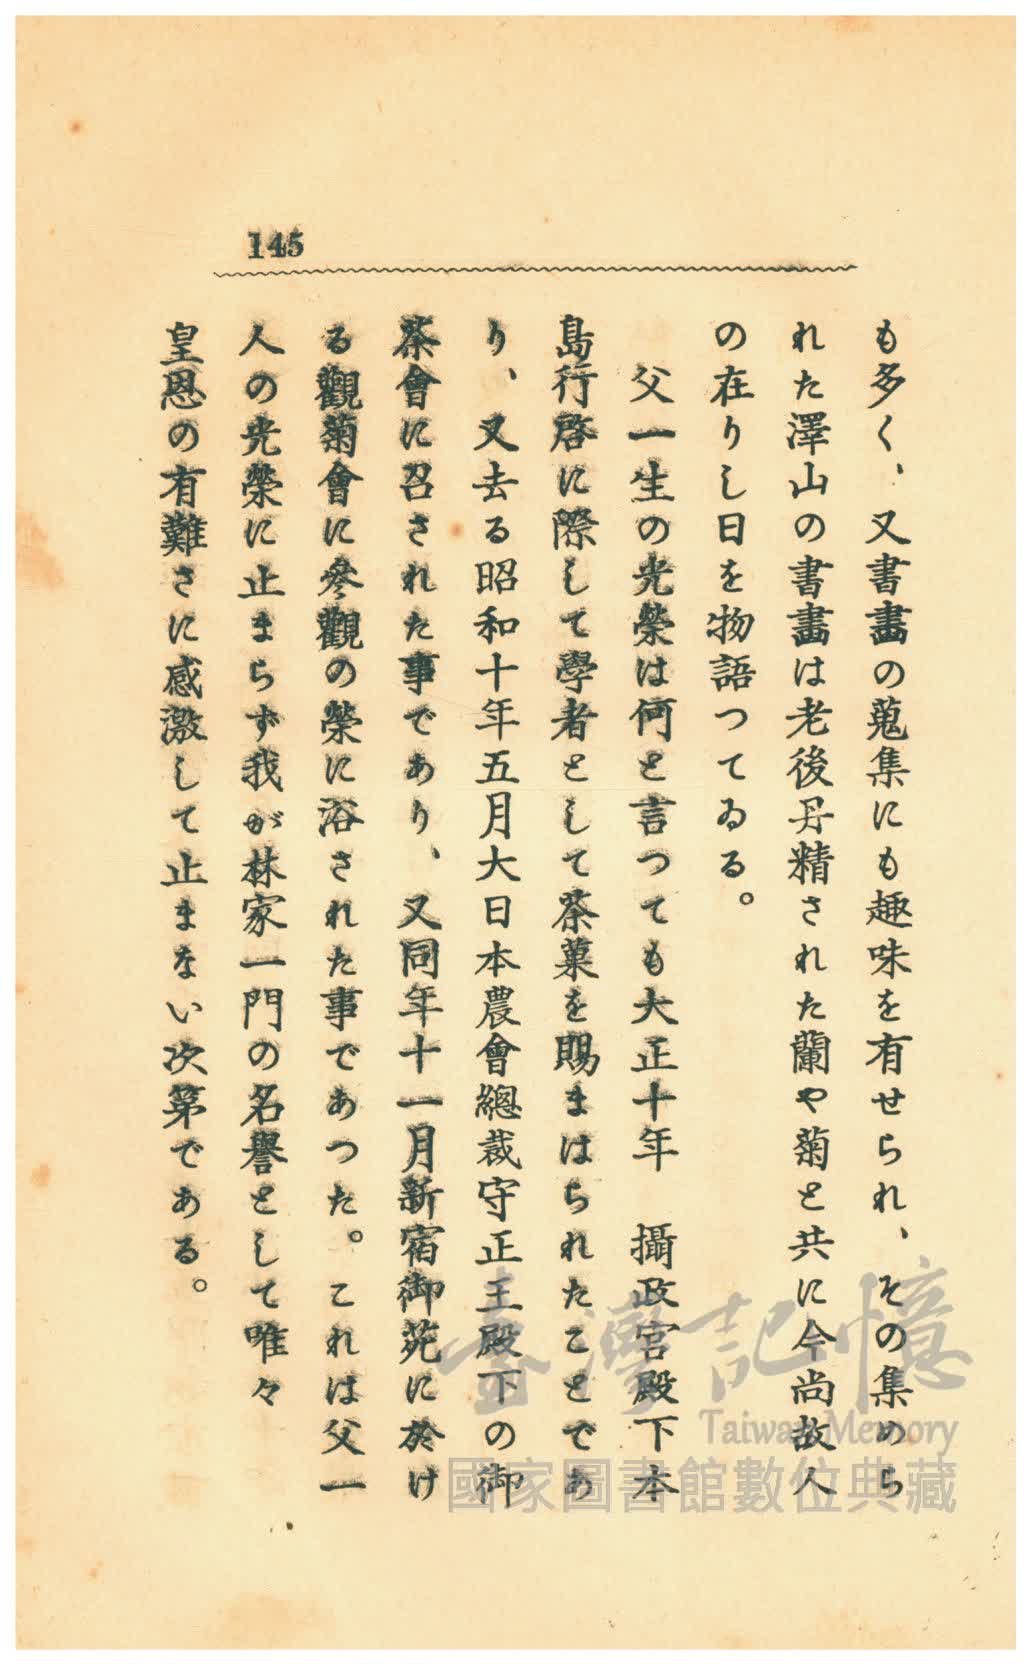 145
も多く、又書畫の蒐集にも趣味を有せられ、その集めら
れた澤山の書畫は老後丹精された蘭や菊と共に今尚故人
の在りし日を物語つてゐる。
父一生の光榮は何と言つても大正十年　攝政宮殿下本
島行啓に際して學者として茶菓を賜まはられたことであ
り、又去る昭和十年五月大日本農會總裁守正王殿下の御
茶會に召された事であり、又同年十一月新宿御苑に於け
る觀菊會に參觀の榮に浴された事であつた。これは父一
人の光榮に止まらず我が林家一門の名譽として唯々
皇恩の有難さに感激して止まない次第である。
臺灣記憶
Taiwan Memory
國家圖書館數位典藏